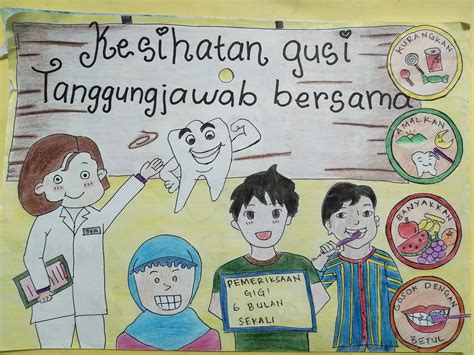 Kesihatan gusi
Tanggungjawab bersama
KURANGKAN
AMALKAN
BANYAKKAN
GOSOK DENGAN
BETUL
PEMERIKSAAN
GIGI
6 BULAN
SEKALI